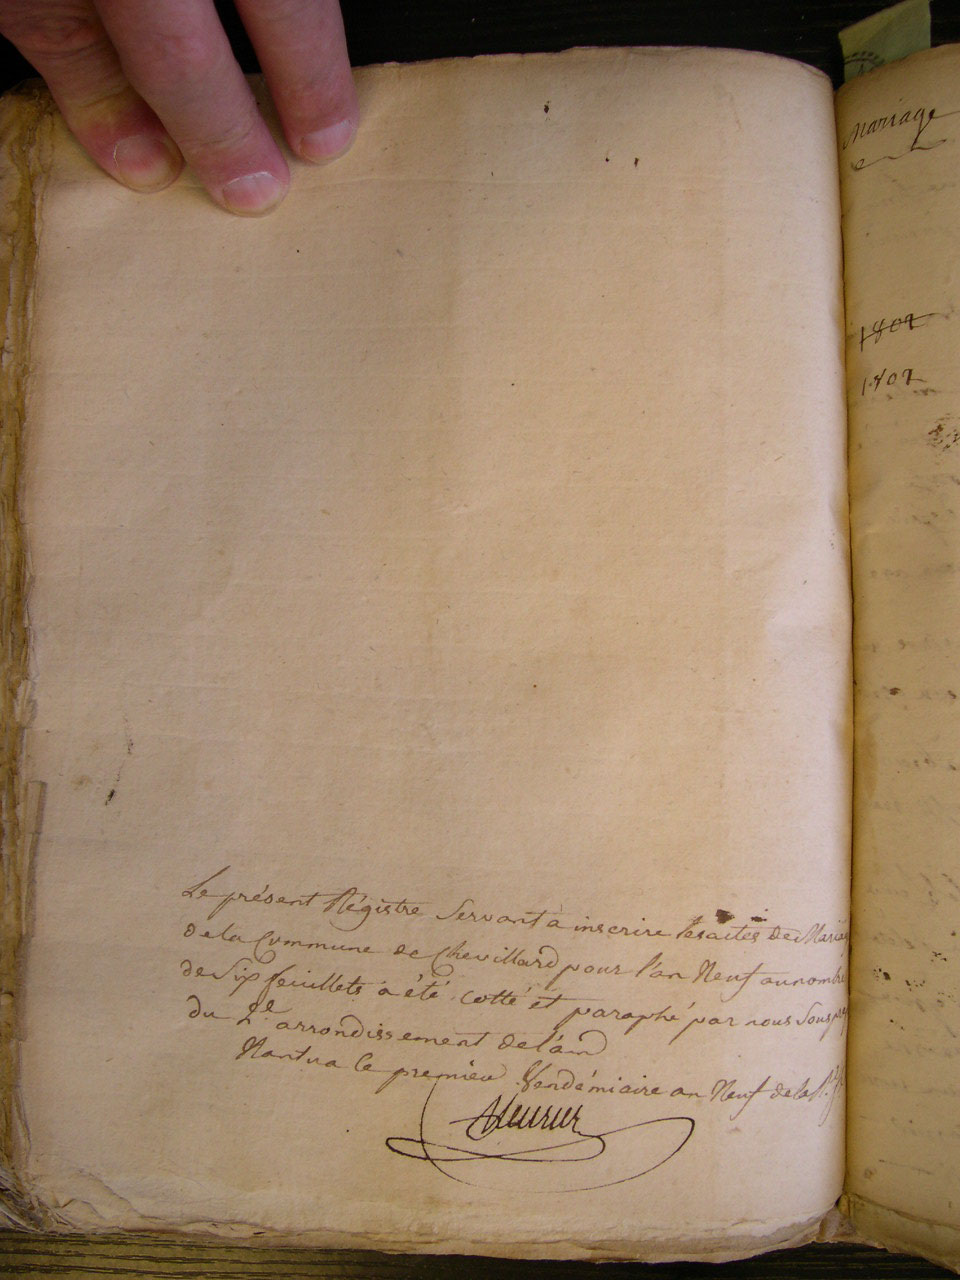 Le présent Régistre Servant à inscrire les actes de Mariag
de la Commune de Chevillard pour l'an Neuf au nombre
de Six feuillets a été cotté et paraphé par nous Sous pre
du 2e arrondissement de l'ain
Nantua le premier Vendémiaire an Neuf de la
Mariage
1802
1802